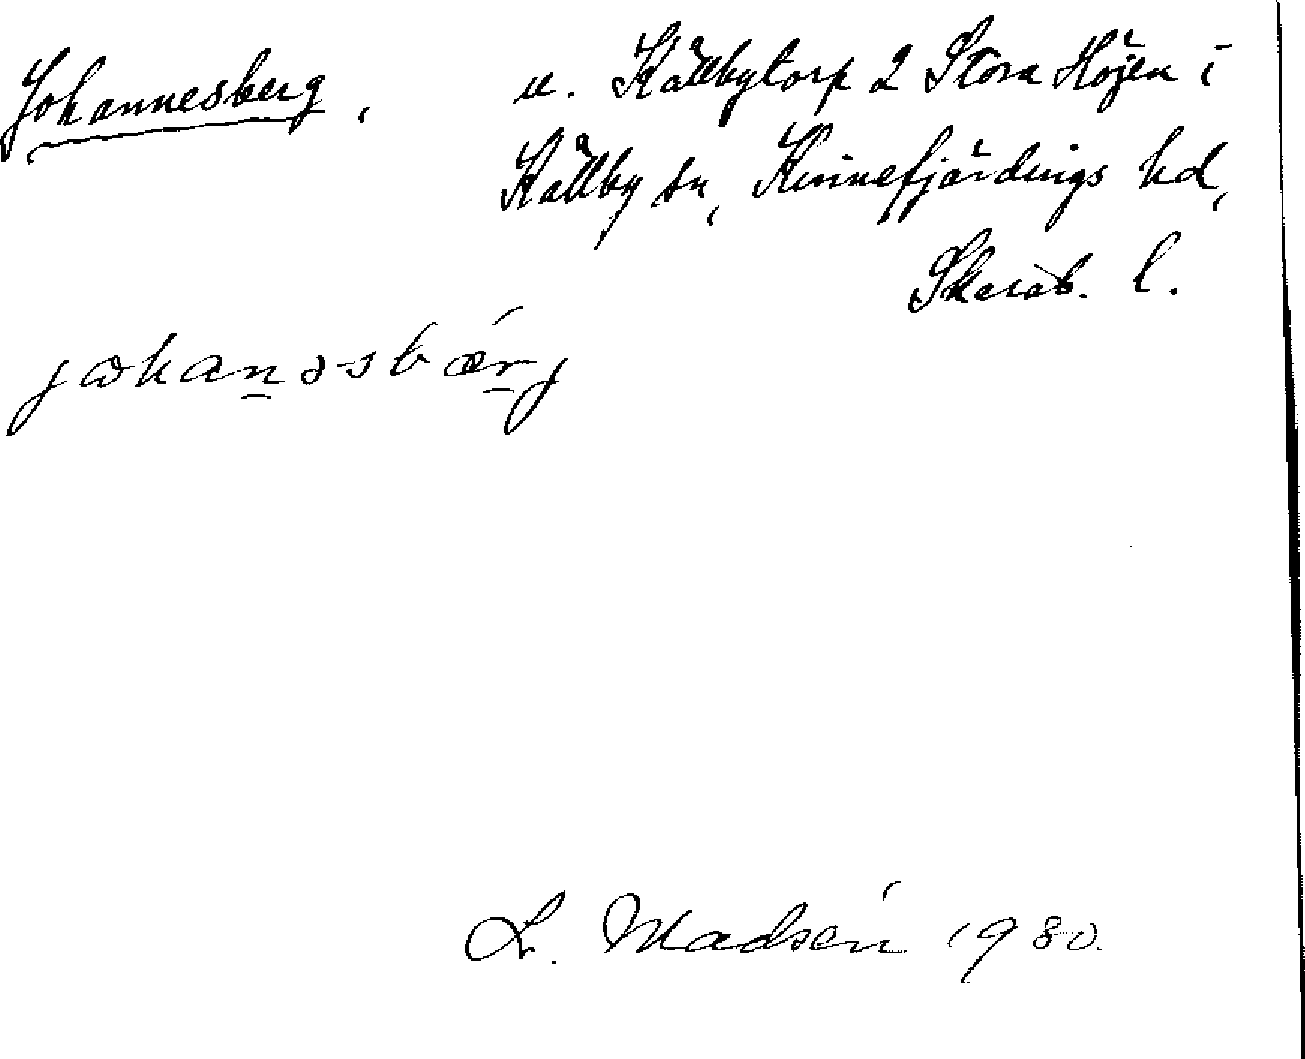 Johannesberg, u. Källbytorp 2 Stora Höjen i
Källby sn, Kinnefjärdings hd,
Skarab. l.
jωhan̲əsbǽr̲j
L. Madsén 1980.